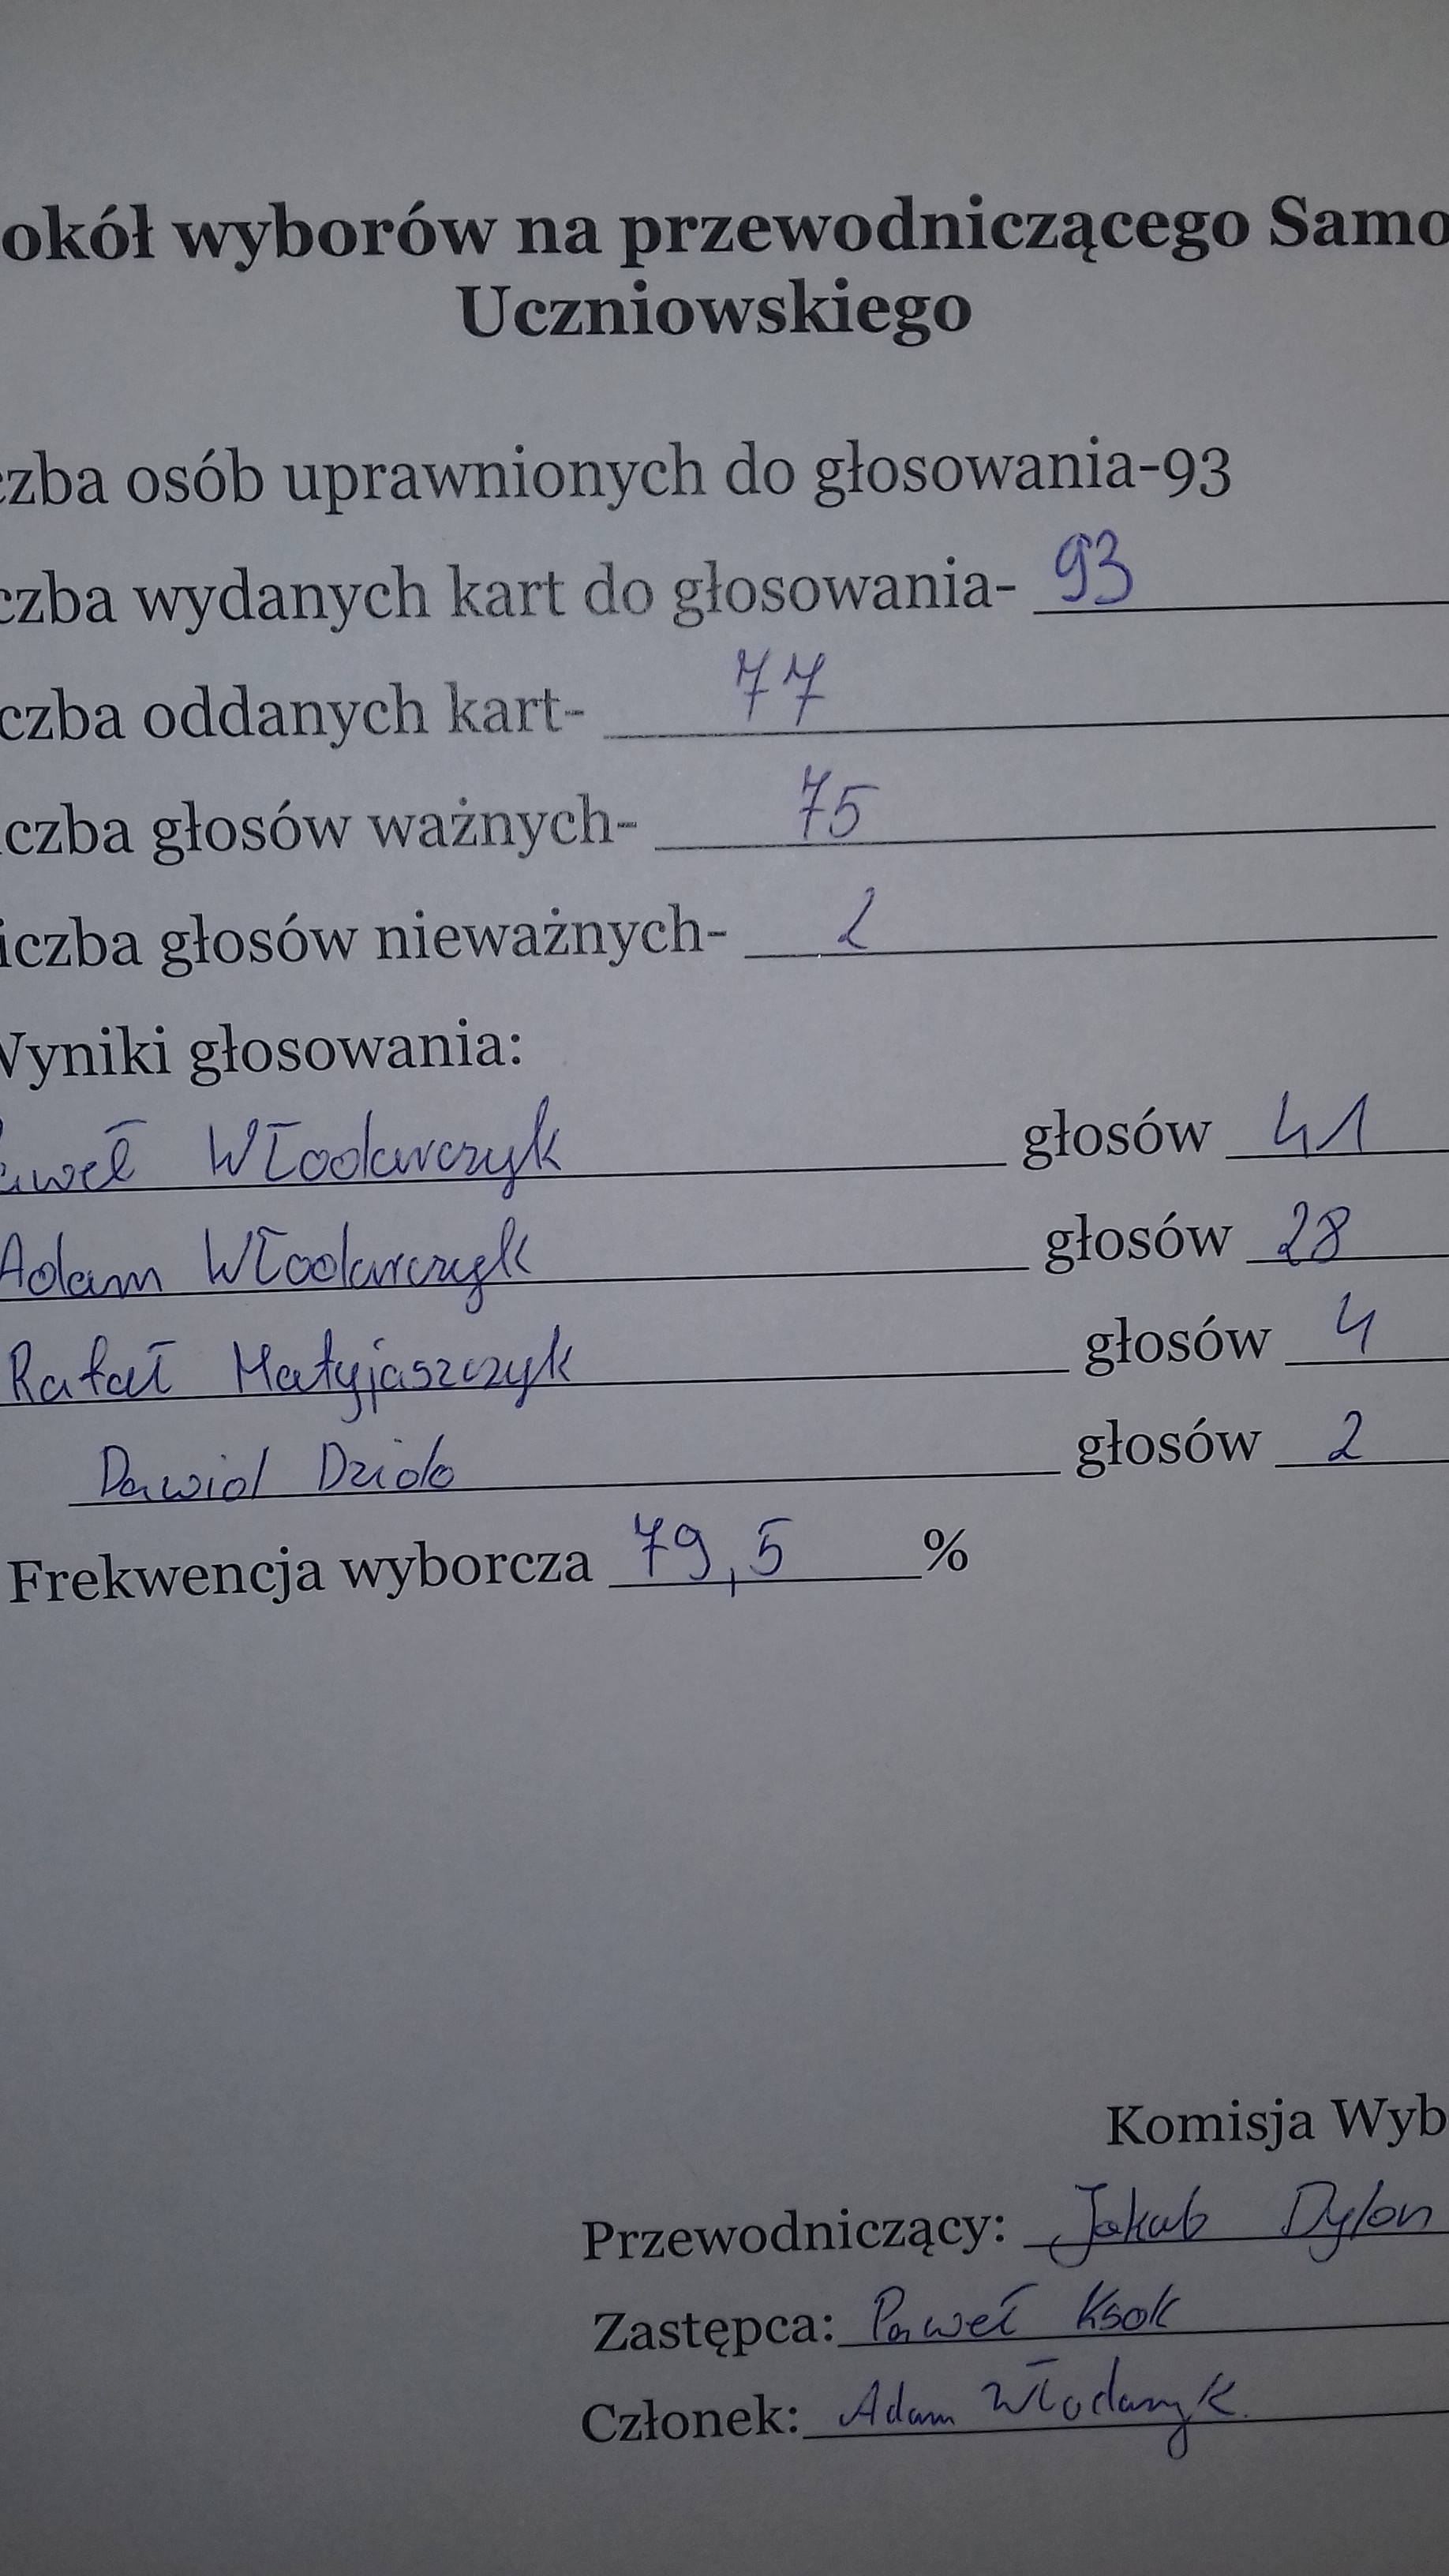 okół wyborów na przewodniczącego Samo
Uczniowskiego
czba osób uprawnionych do głosowania-93
czba wydanych kart do głosowania- 93
czba oddanych kart- 77
czba głosów ważnych- 75
iczba głosów nieważnych- 2
Wyniki głosowania:
aweł Włodarczyk głosów 41
Adam Włodarczyk głosów 28
Rafał Matyjaszczyk głosów 4
Dawid Dzido głosów 2
Frekwencja wyborcza 79,5 %
Komisja Wyb
Przewodniczący: Jakub Dylon
Zastępca: Paweł Ksok
Członek: Adam Włodarczyk